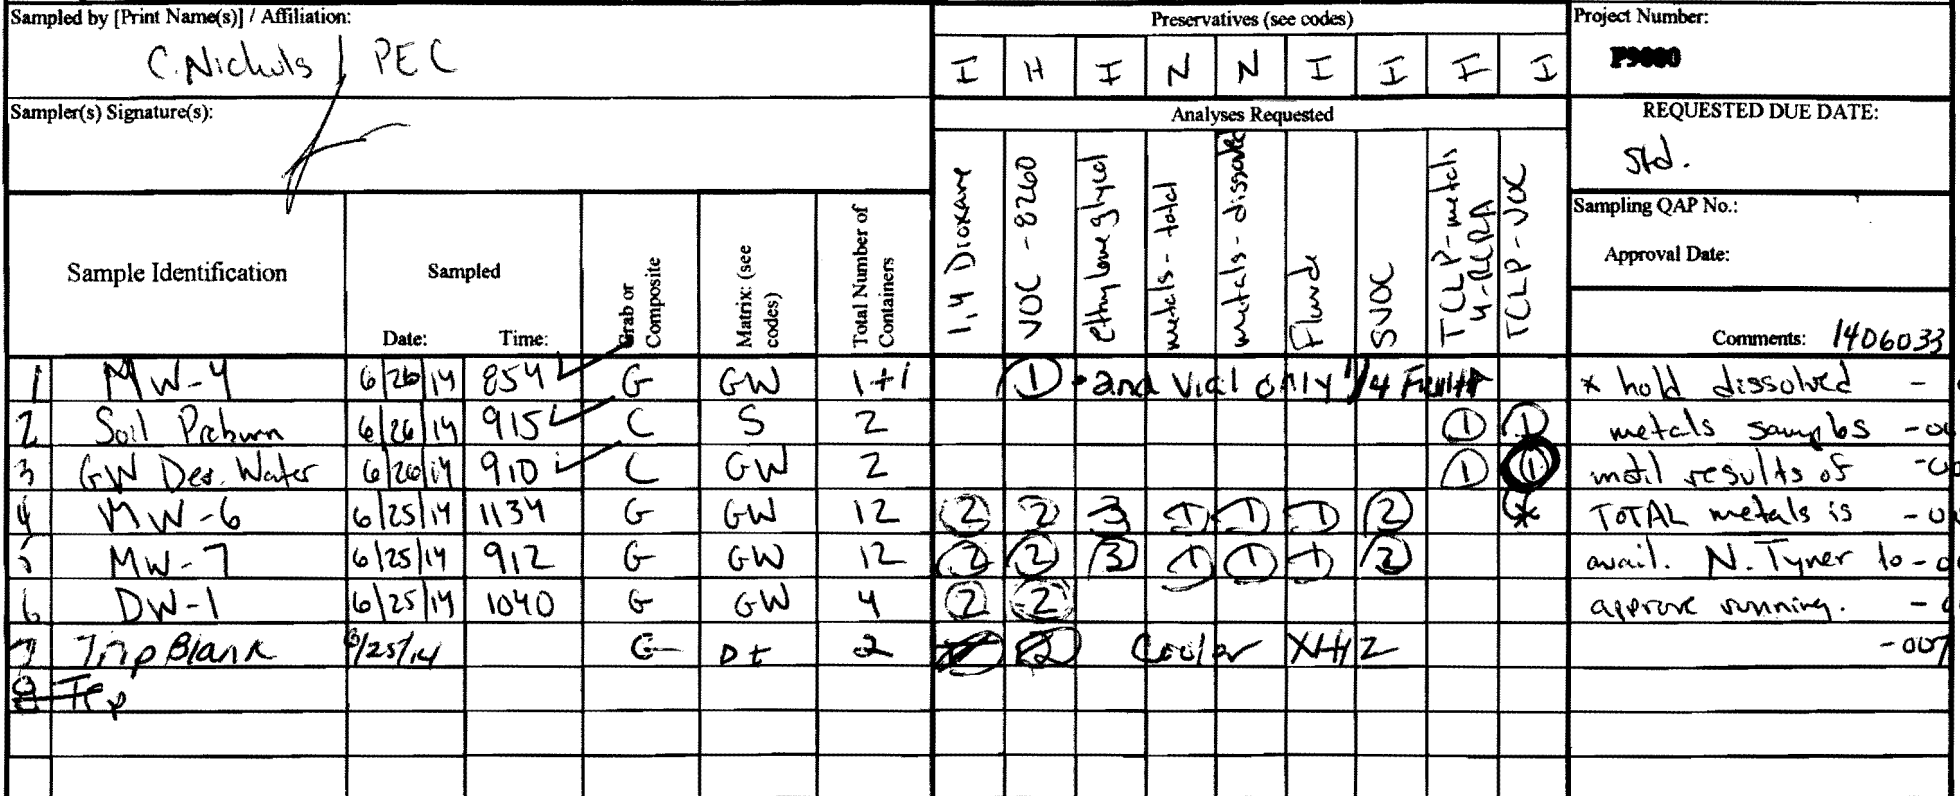 Sampled by [Print Name(s)] / Affiliation:
C. Nichols / PEC
Preservatives (see codes)
I H I N N I I I I
Project Number:
P9000
Sampler(s) Signature(s):
Analyses Requested
REQUESTED DUE DATE:
Std.
Sampling QAP No.:
Approval Date:
Sample Identification
Sampled
Date: Time:
Grab or Composite
Matrix: (see codes)
Total Number of Containers
1,4 Dioxane
VOC - 8260
ethylene glycol
metals - total
metals - dissolved
Fluride
SVOC
TCLP - metals 4-RCRA
TCLP - VOC
Comments: 1406033
1 MW-4 6/26/14 854 G GW 1+1 1 2nd Vial only 1/4 Full * hold dissolved -
2 Soil Preburn 6/26/14 915 C S 2 1 1 metals samples -
3 GW Des. Water 6/26/14 910 C GW 2 1 1 until results of -
4 MW-6 6/25/14 1134 G GW 12 2 2 3 1 1 1 2 * TOTAL metals is -
5 MW-7 6/25/14 912 G GW 12 2 2 3 1 1 1 2 avail. N. Tyner to -
6 DW-1 6/25/14 1040 G GW 4 2 2 approve running. -
7 Trip Blank 6/25/14 G 2 2 Cooler -007
8 Trp